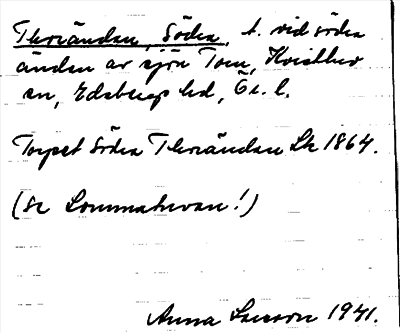 Toriändan, Södra, t. vid södra
änden av sjön Toen, Kvistbro
sn, Edsbergs hd, Ör. l.
Torpet Södra Toriändan Lk 1864.
(se Lommatorvan!)
Anna Larsson 1941.